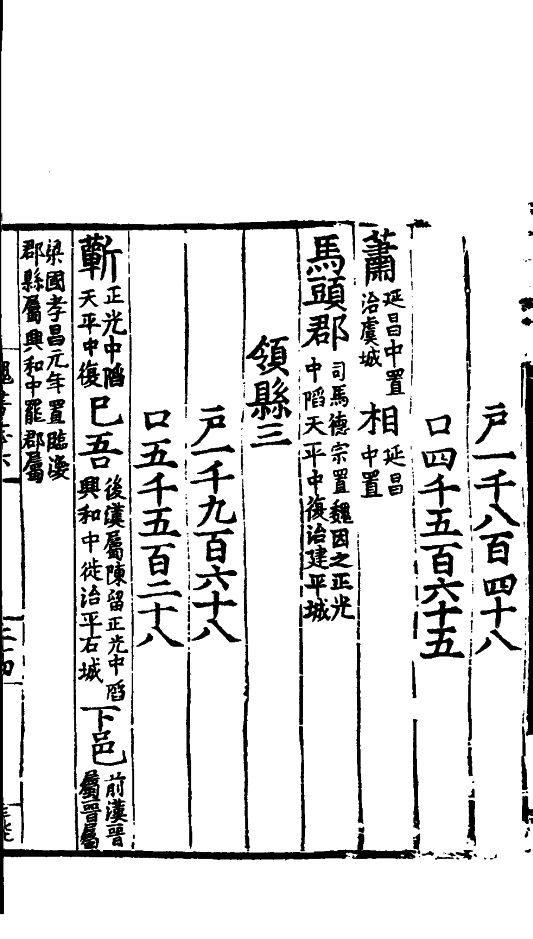 戸一千八百四十八
口四千五百六十五
蕭延昌中置治虞城相延昌中置
馬頭郡司馬德宗置魏因之正光中陷天平中復治建平城
領縣三
戸一千九百六十八
口五千五百二十八
蘄正光中陷天平中復巳吾後漢屬陳留正光中陷興和中徙治平石城下邑前漢晉屬晉屬
梁國孝昌元年置臨渙郡縣屬興和中罷郡屬
三十四